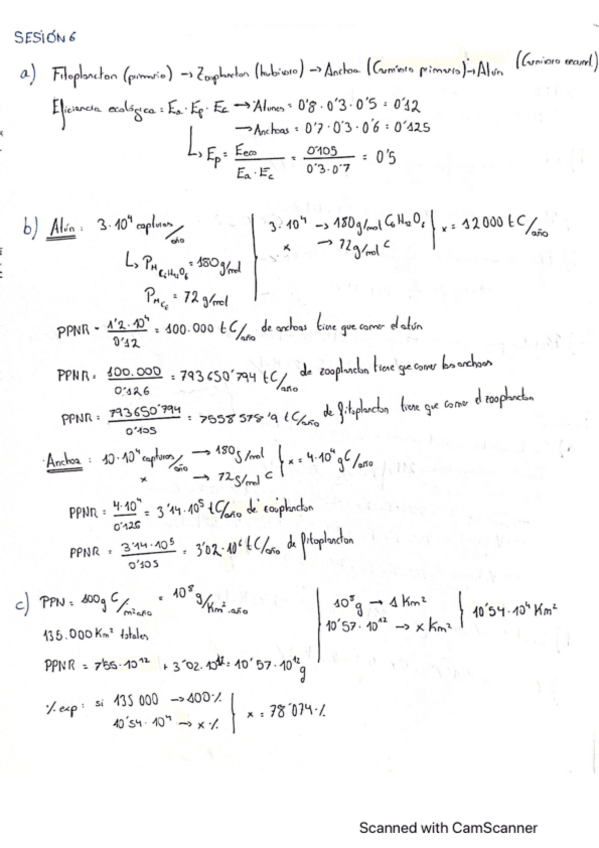 SESIÓN 6
a) Fitoplancton (primario) → Zooplancton (herbívoro) → Anchoa (Carnívoro primario) → Atún (Carnívoro secund)
Eficiencia ecológica = Ea · Ep · Ec → Atunes = 0'8 · 0'3 · 0'5 = 0'12
→ Anchoas = 0'7 · 0'3 · 0'6 = 0'125
↳ Ep = Eeco / Ea · Ec = 0'105 / 0'3 · 0'7 = 0'5
b) Atún: 3·10⁴ capturas/año
3·10⁴ → 180 g/mol C6H12O6
x → 72 g/mol C } x = 12000 tC/año
↳ PM C6H12O6 = 180 g/mol
PM C6 = 72 g/mol
PPNR = 1'2·10⁴ / 0'12 = 100.000 tC/año de anchoas tiene que comer el atún
PPNR = 100.000 / 0'126 = 793650'794 tC/año de zooplancton tiene que comer las anchoas
PPNR = 793650'794 / 0'105 = 7558578'9 tC/año de fitoplancton tiene que comer el zooplancton
Anchoa: 10·10⁴ capturas/año → 180 g/mol
x → 72 g/mol C } x = 4·10⁴ gC/año
PPNR = 4·10⁴ / 0'126 = 3'14·10⁵ tC/año de zooplancton
PPNR = 3'14·10⁵ / 0'105 = 3'02·10⁶ tC/año de fitoplancton
c) PPN = 100 g C/m² año = 10⁸ g/Km² · año
10⁸ g → 1 Km²
10'57·10¹² → x Km² } 10'54·10⁴ Km²
135.000 Km² totales
PPNR = 7'55·10¹² + 3'02·10¹² = 10'57·10¹² g
% exp: si 135 000 → 100%
10'54·10⁴ → x % } x = 78'074 %
Scanned with CamScanner